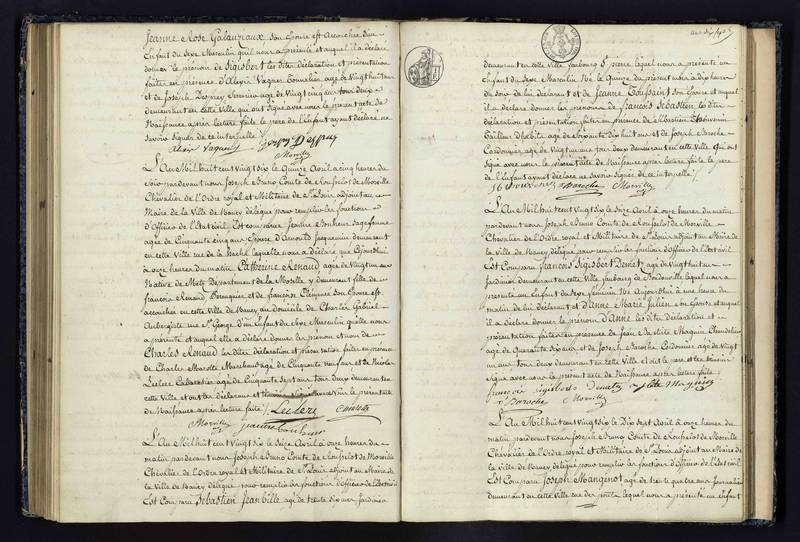 Jeanne Rose Galauziaux son Epouse est accouchée d'un
Enfant du sexe Masculin qu'il nous a présenté et auquel il a déclaré
donner le prénom de Sigisbert les dites déclaration et présentation
faites en présence d'Alexis Vagner Tonnelier agé de Vingt huit ans
et de Joseph Desprey Serrurier agé de Vingt cinq ans tous deux
demeurant en cette Ville qui ont signé avec nous le présent acte de
Naissance après lecture faite le père de l'Enfant ayant déclaré ne
savoir signer de ce interpellé
L'An Mil huit cent Vingt six le Quinze Avril à cinq heures du
soir pardevant nous Joseph Bruno Comte de Rousselot de Morville
Chevalier de l'Ordre royal et Militaire de St Louis adjoint au
Maire de la Ville de Nancy délégué pour remplir les fonctions
d'Officier de l'Etat civil Est comparue Jeanne Bonheur sage femme
agée de Cinquante cinq ans Epouse d'Arnould Jacquemin demeurant
en cette Ville rue de la hache laquelle nous a déclaré que Cejourd'hui
à onze heures du matin Catherine Renaud agée de Vingt un ans
Native de Metz Département de la Moselle y demeurant fille de
françois Renaud Perruquier et de françoise son Epouse est
accouchée en cette Ville de Nancy au domicile de Charles Gabriel
Aubergiste rue St George D'un Enfant du sexe Masculin qu'elle nous
a présenté et auquel elle a déclaré donner les prénom et nom de
Charles Renaud les dites déclaration et présentation faites en présence
de Charles Marotte Marchand agé de Cinquante neuf ans et de Nicolas
Leclerc agé de Cinquante sept ans tous deux demeurant en
cette Ville et ont les déclarante et témoins signé avec nous le présent acte
de Naissance après lecture faite Leclerc
Morville
L'An Mil huit cent Vingt six le Seize Avril à onze heures du
matin pardevant nous Joseph Bruno Comte de Rousselot de Morville
Chevalier de l'Ordre royal et Militaire de St Louis adjoint au Maire de
la Ville de Nancy délégué pour remplir les fonctions d'Officier de l'Etat civil
Est Comparu Sébastien Jeanbille agé de trente six ans Jardinier
demeurant en cette Ville faubourg St pierre lequel nous a présenté un
Enfant du Sexe Masculin Né le Quinze du présent mois à dix heures
du soir de lui déclarant et de Jeanne Toussaint son Epouse et auquel
il a déclaré donner les prénoms de françois Sébastien les dites
déclaration et présentation faites en présence de Sébastien Thouvenin
Tailleur d'habits agé de soixante dix huit ans et de Joseph Baroche
Cordonnier agé de Vingt un ans tous deux demeurant en cette Ville qui ont
signé avec nous le présent acte de Naissance après lecture faite le père
de l'Enfant ayant déclaré ne savoir signer de ce interpellé
Baroche Morville
L'An Mil huit cent Vingt six le Seize Avril à onze heures du matin
pardevant nous Joseph Bruno Comte de Rousselot de Morville
Chevalier de l'Ordre royal et Militaire de St Louis adjoint au Maire de la
Ville de Nancy délégué pour remplir les fonctions d'Officier de l'Etat civil
Est Comparu françois Sigisbert Demetz agé de Vingt huit ans
Jardinier demeurant en cette Ville faubourg de Boudonville lequel nous a
présenté un Enfant du sexe féminin Né Aujourd'hui à une heure du
matin de lui déclarant et d'Anne Marie Julien son Epouse et auquel
il a déclaré donner le prénom d'Anne les dites déclaration et
présentation faites en présence de Jean Baptiste Maguin
agé de Quarante six ans et de Joseph Baroche Cordonnier agé de Vingt
un ans tous deux demeurant en cette Ville et ont le père et les témoins
signé avec nous le présent acte de Naissance après lecture faite
françois sigisbert Demetz
Baroche Morville
L'An Mil huit cent Vingt six le Dix Sept Avril à onze heures du
matin pardevant nous Joseph Bruno Comte de Rousselot de Morville
Chevalier de l'Ordre royal et Militaire de St Louis adjoint au Maire de
la Ville de Nancy délégué pour remplir les fonctions d'Officier de l'Etat civil
Est Comparu Joseph Mangenot agé de trente quatre ans Journalier
demeurant en cette Ville rue des ponts lequel nous a présenté un Enfant